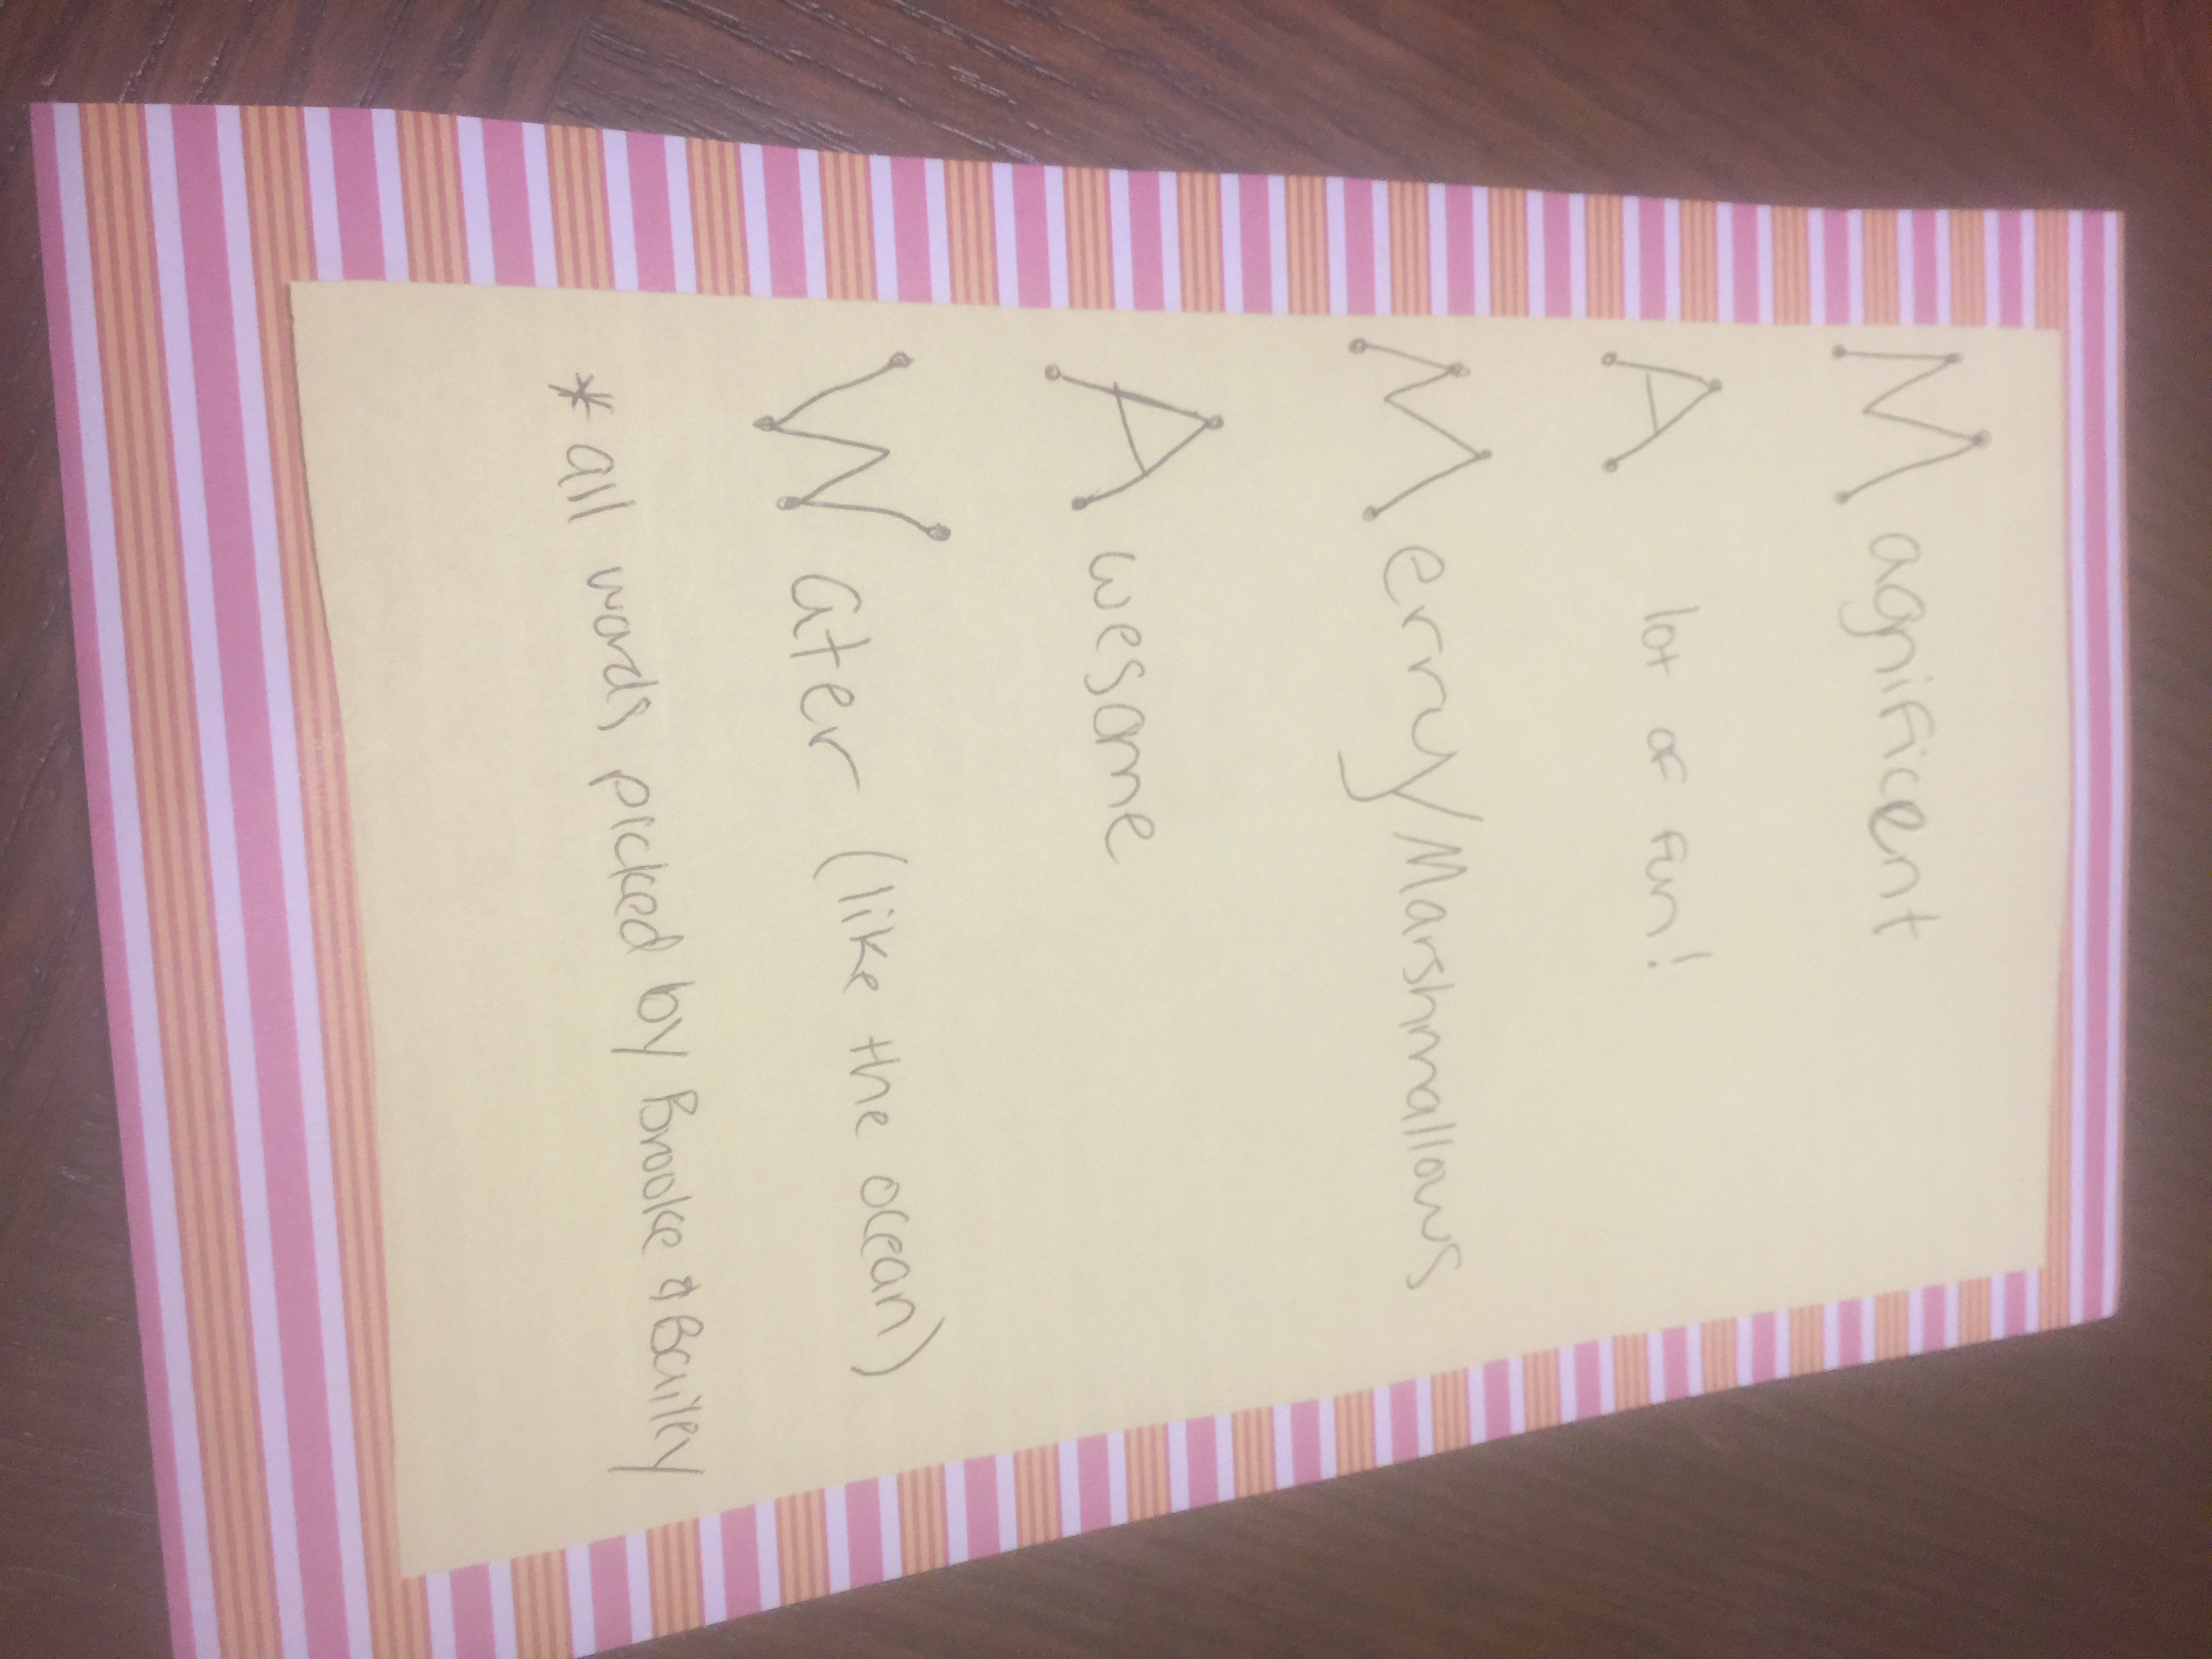 Magnificent
A lot of fun!
Merry/Marshmallows
Awesome
Water (like the ocean)
* all words picked by Brooke & Bailey